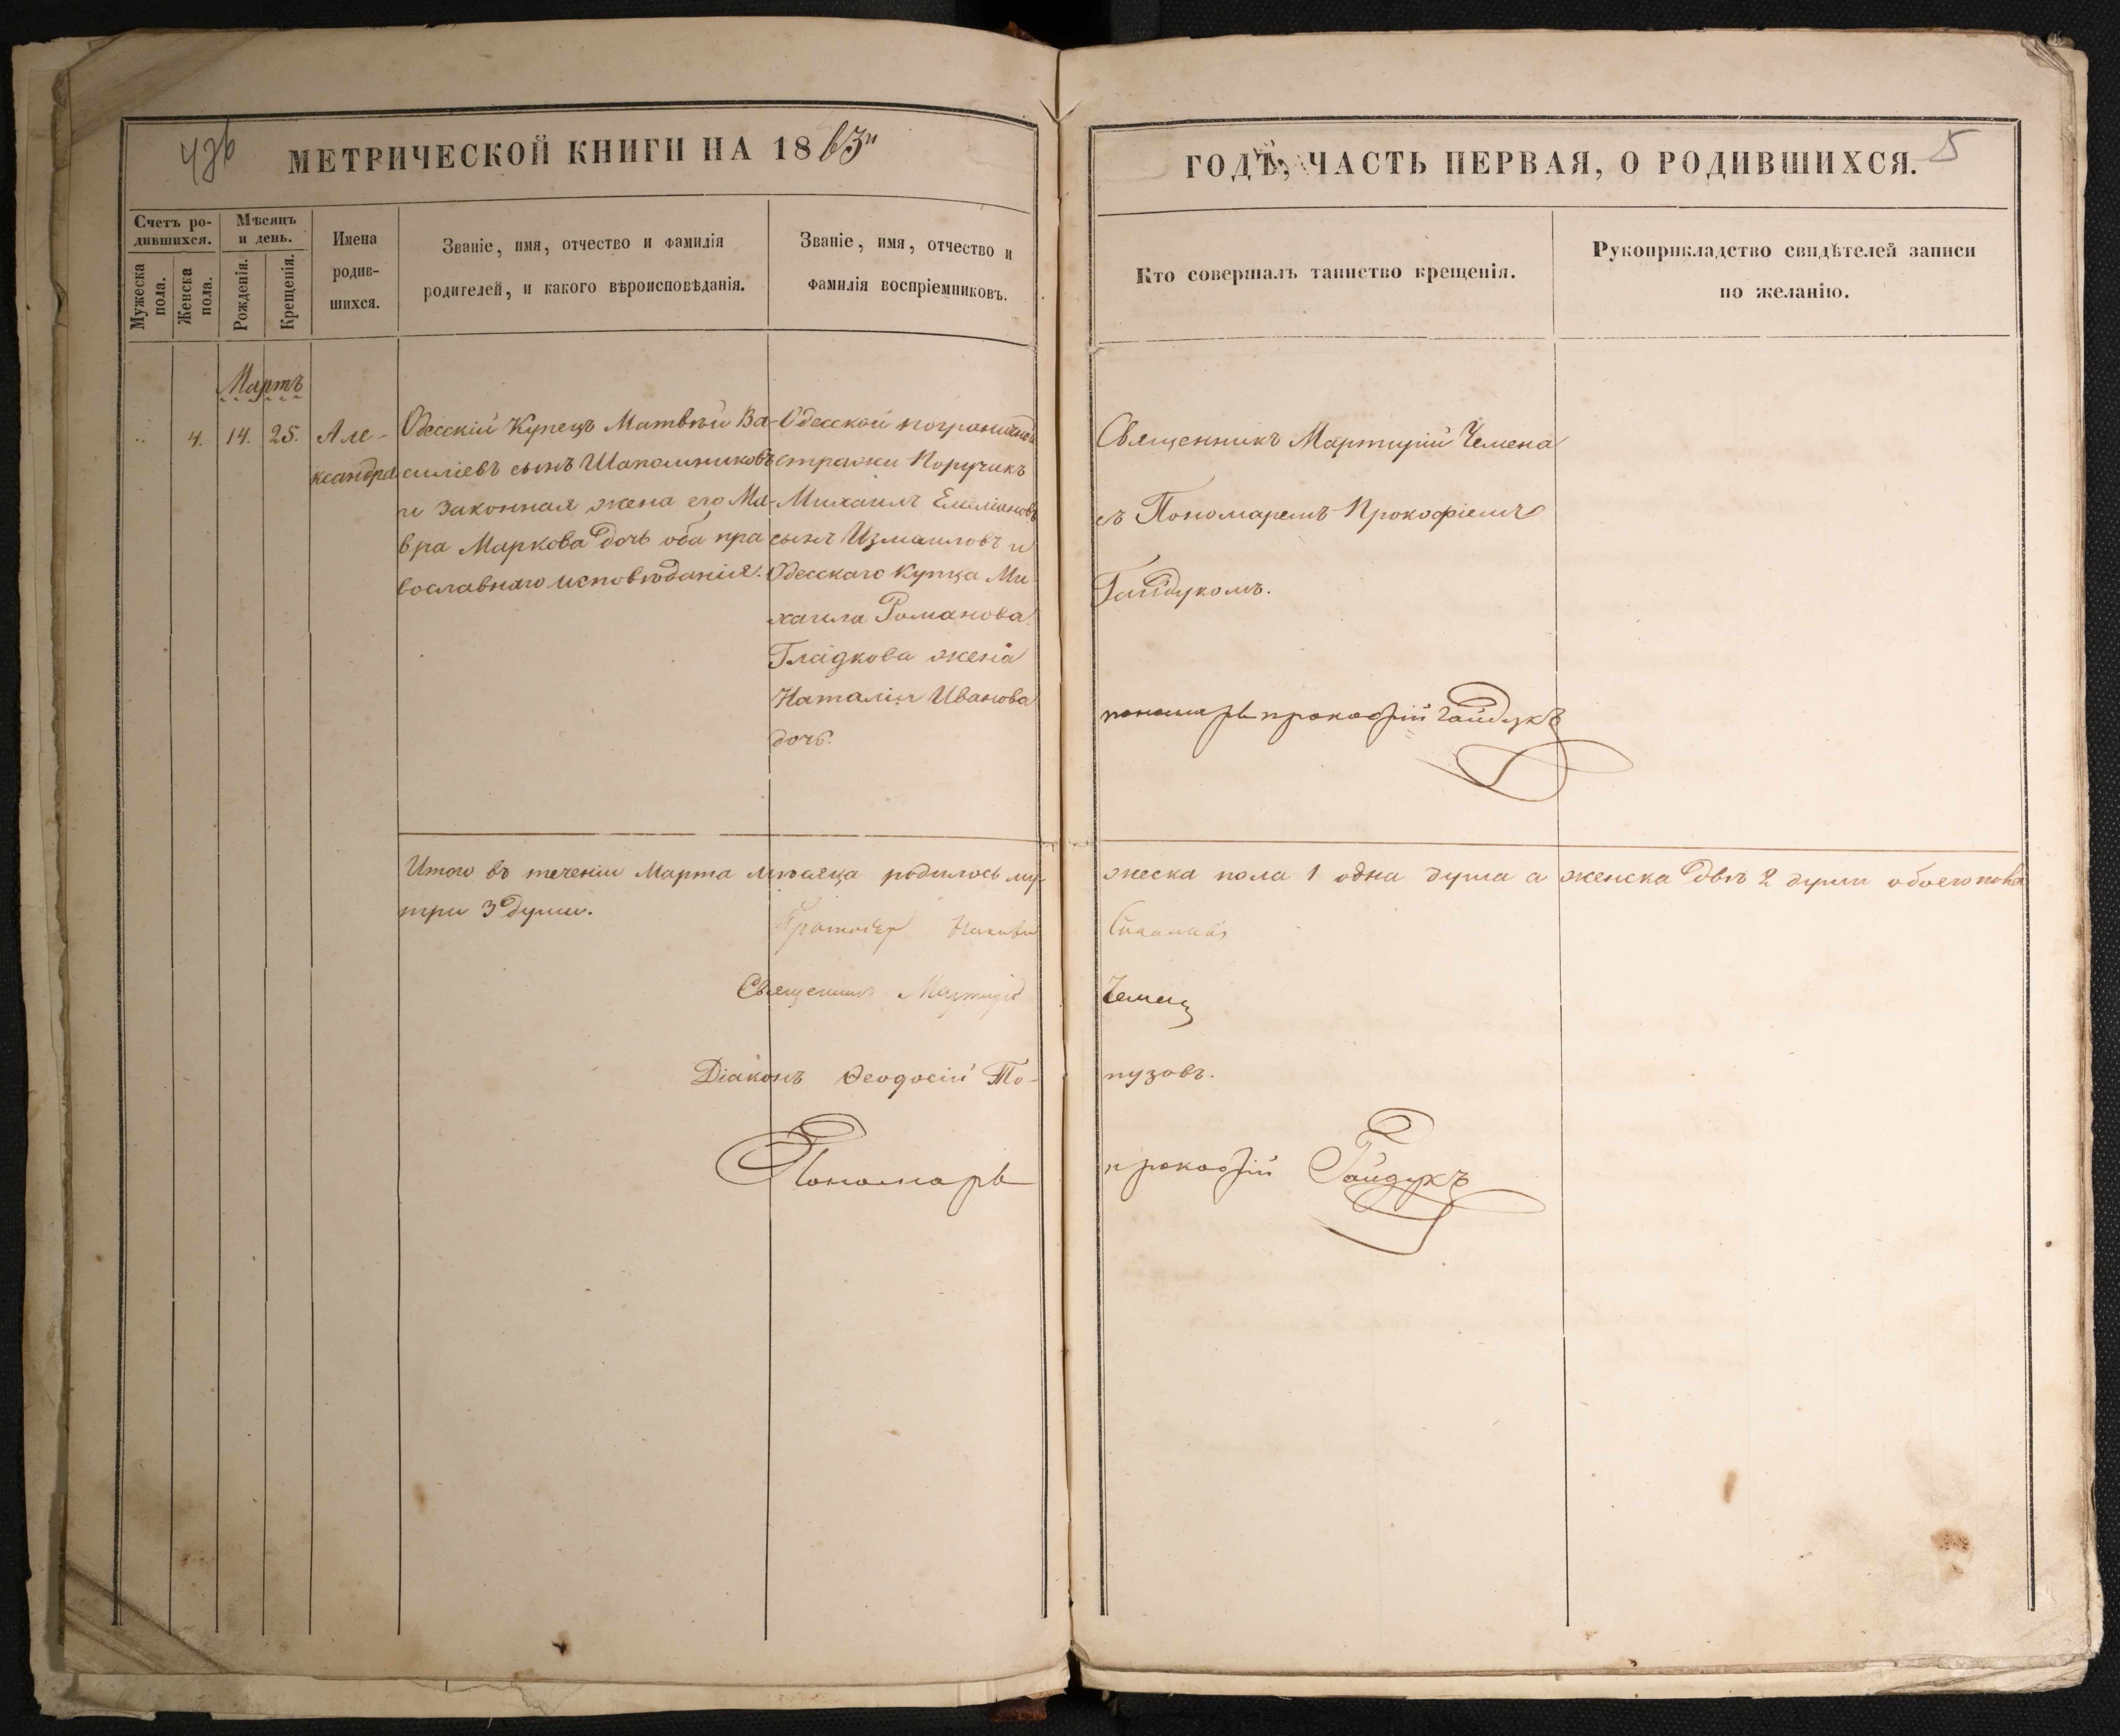 МЕТРИЧЕСКОЙ КНИГИ НА 1863
ГОДЪ, ЧАСТЬ ПЕРВАЯ, О РОДИВШИХСЯ.
5
Счетъ ро-
дившихся.
Мужеска
пола.
Женска
пола.
Мѣсяцъ
и день.
Рожденія.
Крещенія.
Имена
родив-
шихся.
Званіе, имя, отчество и фамилія
родителей, и какого вѣроисповѣданія.
Званіе, имя, отчество и
фамилія воспріемниковъ.
Кто совершалъ таинство крещенія.
Рукоприкладство свидѣтелей записи
по желанію.
Мартъ
4.
14.
25.
Але-
ксандра
Одесскій Купецъ Матвѣй Ва-
силіевъ сынъ Шапошниковъ
и законная жена его Ма-
вра Маркова дочь оба пра
вославнаго исповѣданія.
Одесской пограничной
стражи Поручикъ
Михаилъ Емеліановъ
сынъ Измаиловъ и
Одесскаго Купца Ми
хаила Романова
Гладкова жена
Наталія Иванова
дочь.
Священникъ Мартирій Чемена
съ Пономаремъ Прокофіемъ
Гайдукомъ.
пономарь прокофій гайдукъ
Итого въ теченіи Марта мѣсяца родилось му-
жеска пола 1 одна душа а женска двѣ 2 души обоего пола
три 3 души.
Священникъ Мартирій Чемен
Діаконъ Ѳеодосій То-
пузовъ.
Пономарь прокофій Гайдукъ